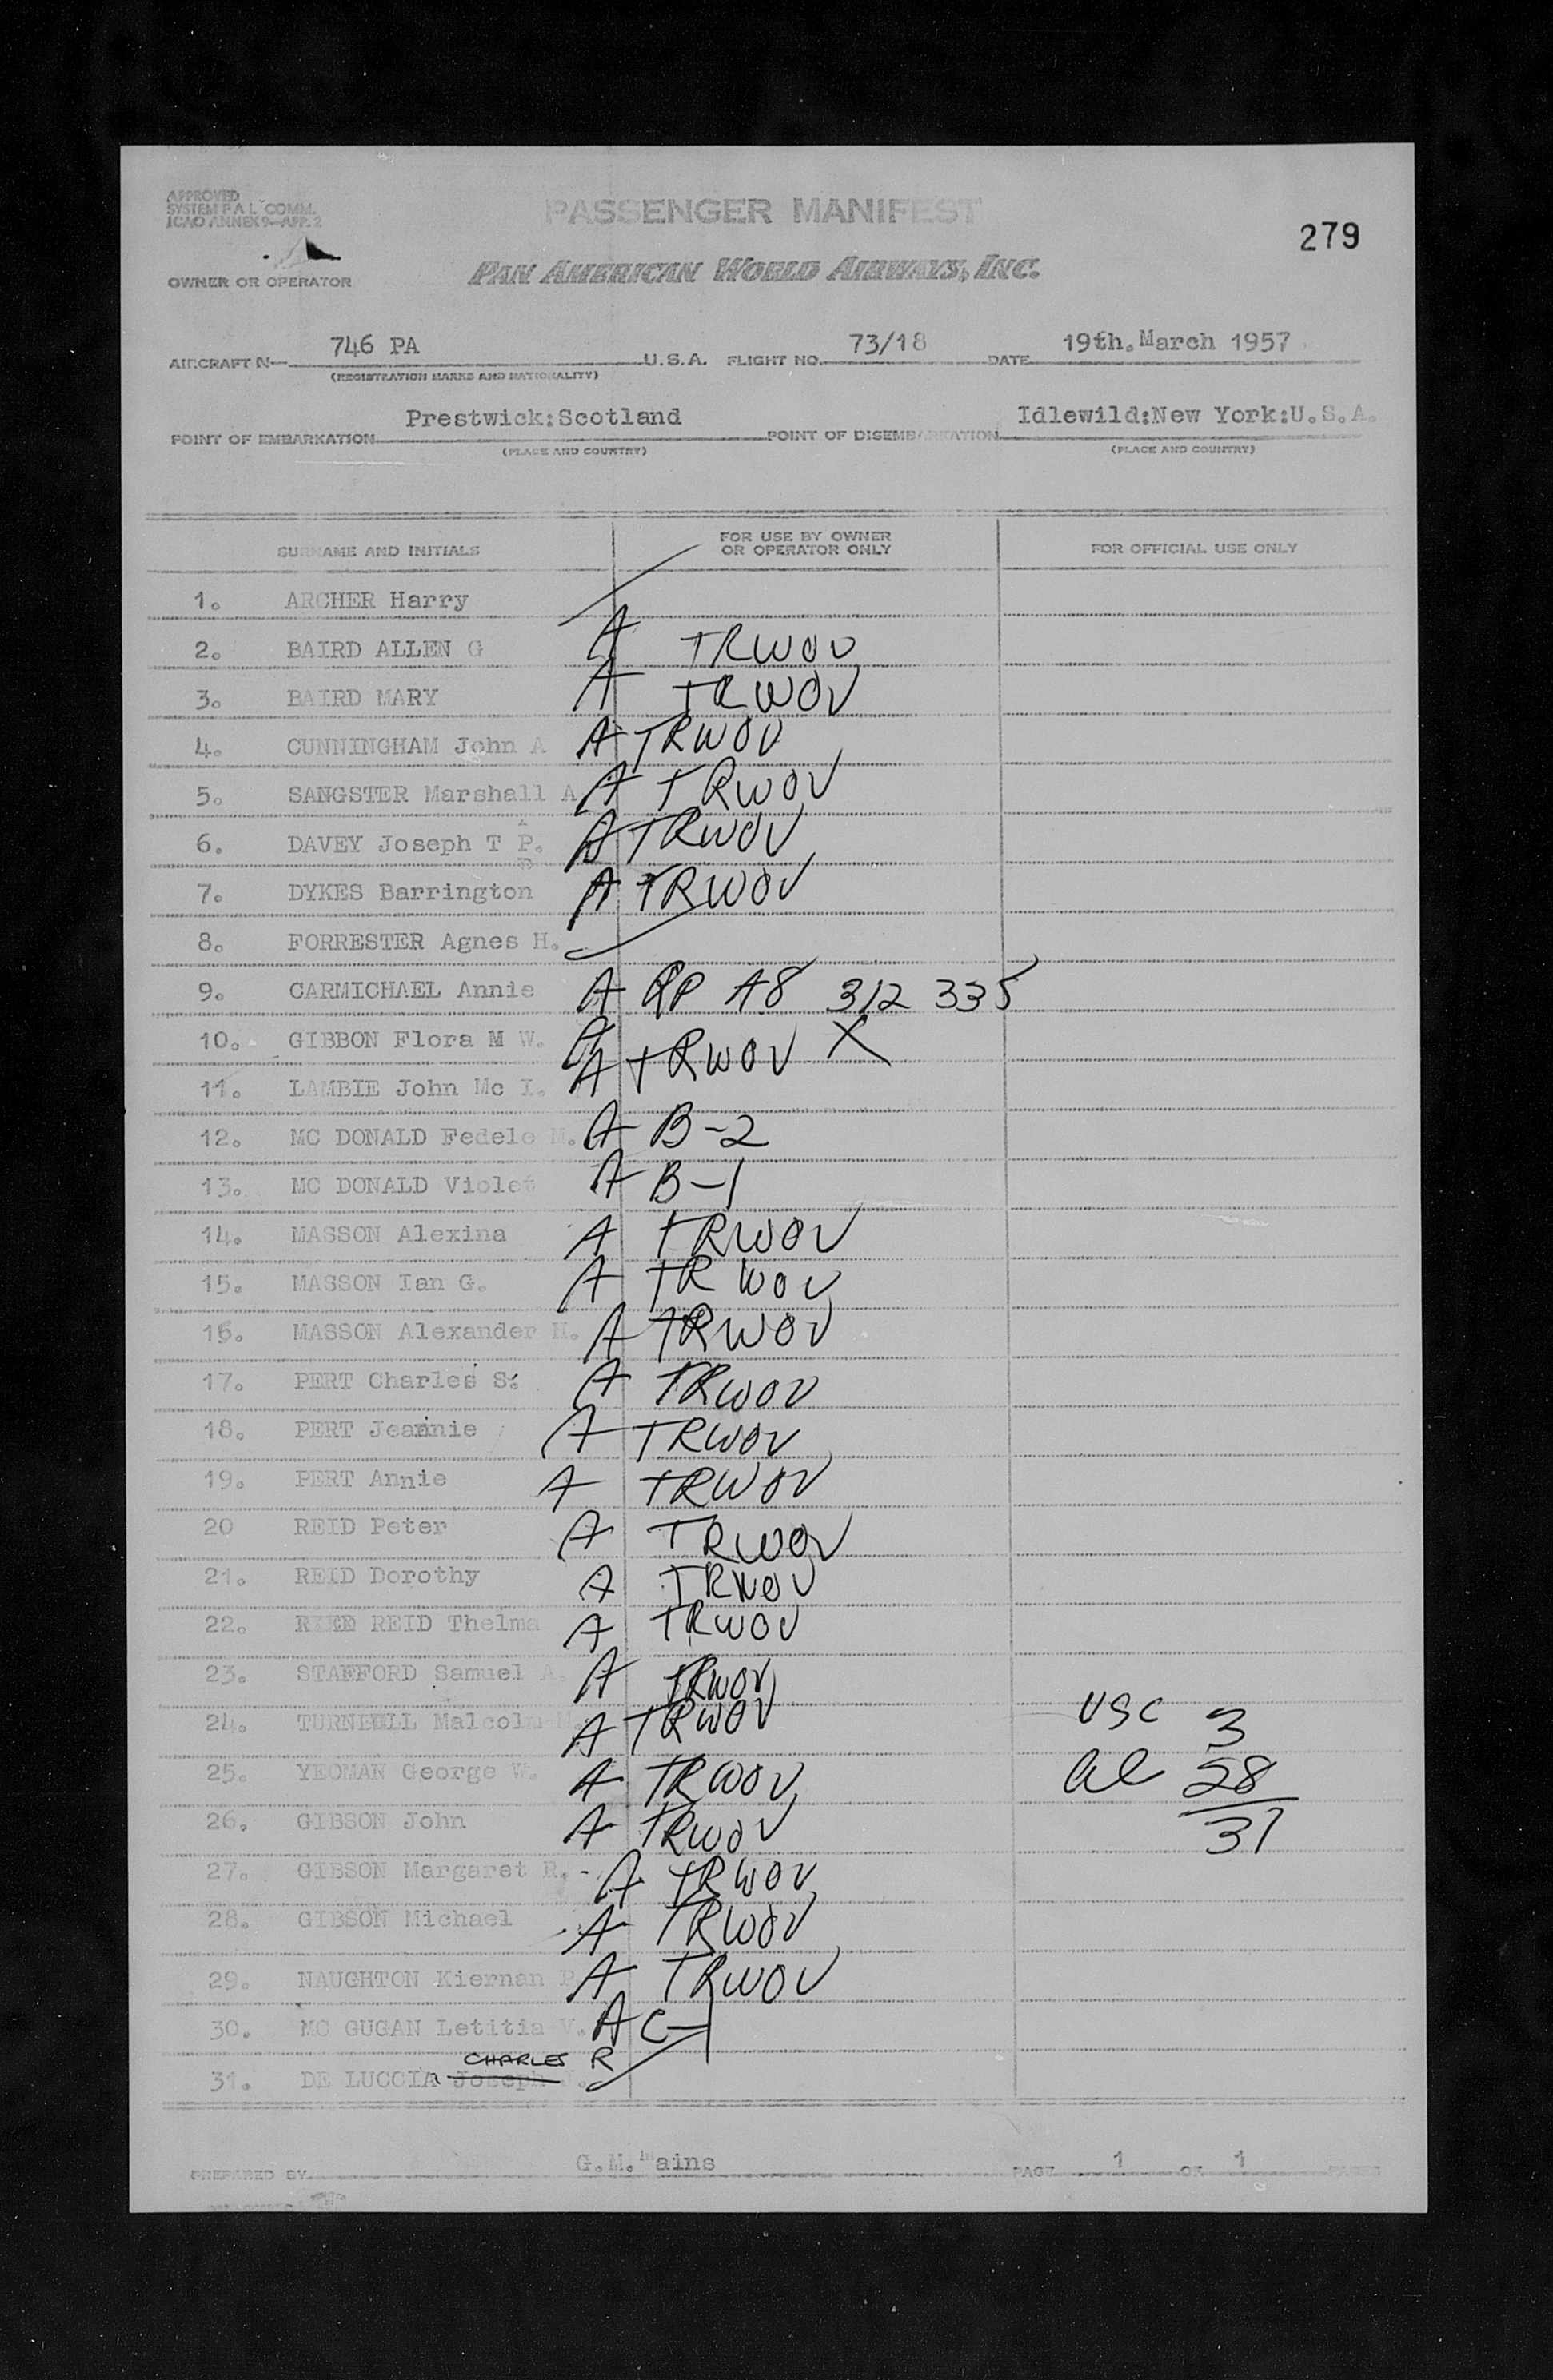 APPROVED
SYSTEM P.A.L. COMM.
ICAO ANNEX 9-APP. 2
PASSENGER MANIFEST
279
OWNER OR OPERATOR
PAN AMERICAN WORLD AIRWAYS, INC.
AIRCRAFT N— 746 PA U.S.A. FLIGHT NO. 73/18 DATE 19th. March 1957
(REGISTRATION MARKS AND NATIONALITY)
POINT OF EMBARKATION Prestwick:Scotland POINT OF DISEMBARKATION Idlewild:New York:U.S.A.
(PLACE AND COUNTRY) (PLACE AND COUNTRY)
SURNAME AND INITIALS FOR USE BY OWNER OR OPERATOR ONLY FOR OFFICIAL USE ONLY
1. ARCHER Harry
2. BAIRD ALLEN G A TRWOV
3. BAIRD MARY A TRWOV
4. CUNNINGHAM John A A TRWOV
5. SANGSTER Marshall A A TRWOV
6. DAVEY Joseph T P. A TRWOV
7. DYKES Barrington A TRWOV
8. FORRESTER Agnes H.
9. CARMICHAEL Annie A RP A8 312 335
10. GIBBON Flora M W. A TRWOV X
11. LAMBIE John Mc I. A
12. MC DONALD Fedele M. A B-2
13. MC DONALD Violet A B-1
14. MASSON Alexina A TRWOV
15. MASSON Ian G. A TRWOV
16. MASSON Alexander H. A TRWOV
17. PERT Charles S. A TRWOV
18. PERT Jeannie A TRWOV
19. PERT Annie A TRWOV
20 REID Peter A TRWOV
21. REID Dorothy A TRWOV
22. REID Thelma A TRWOV
23. STAFFORD Samuel A. A TRWOV
24. TURNBULL Malcolm M. A TRWOV USC 3
25. YEOMAN George W. A TRWOV al 28
26. GIBSON John A TRWOV 31
27. GIBSON Margaret R. - A TRWOV
28. GIBSON Michael A TRWOV
29. NAUGHTON Kiernan P A TRWOV
30. MC GUGAN Letitia V. A C-1
CHARLES R
31. DE LUCCIA Joseph
PREPARED BY G.M. Mains PAGE 1 OF 1 PAGES